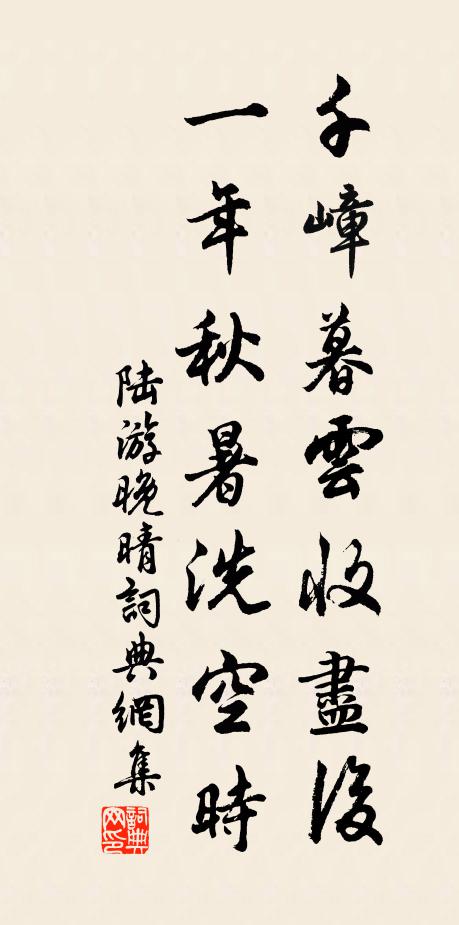 千嶂暮雲收盡後
一年秋暑洗空時
陆游晚晴詞典網集
詞典网印